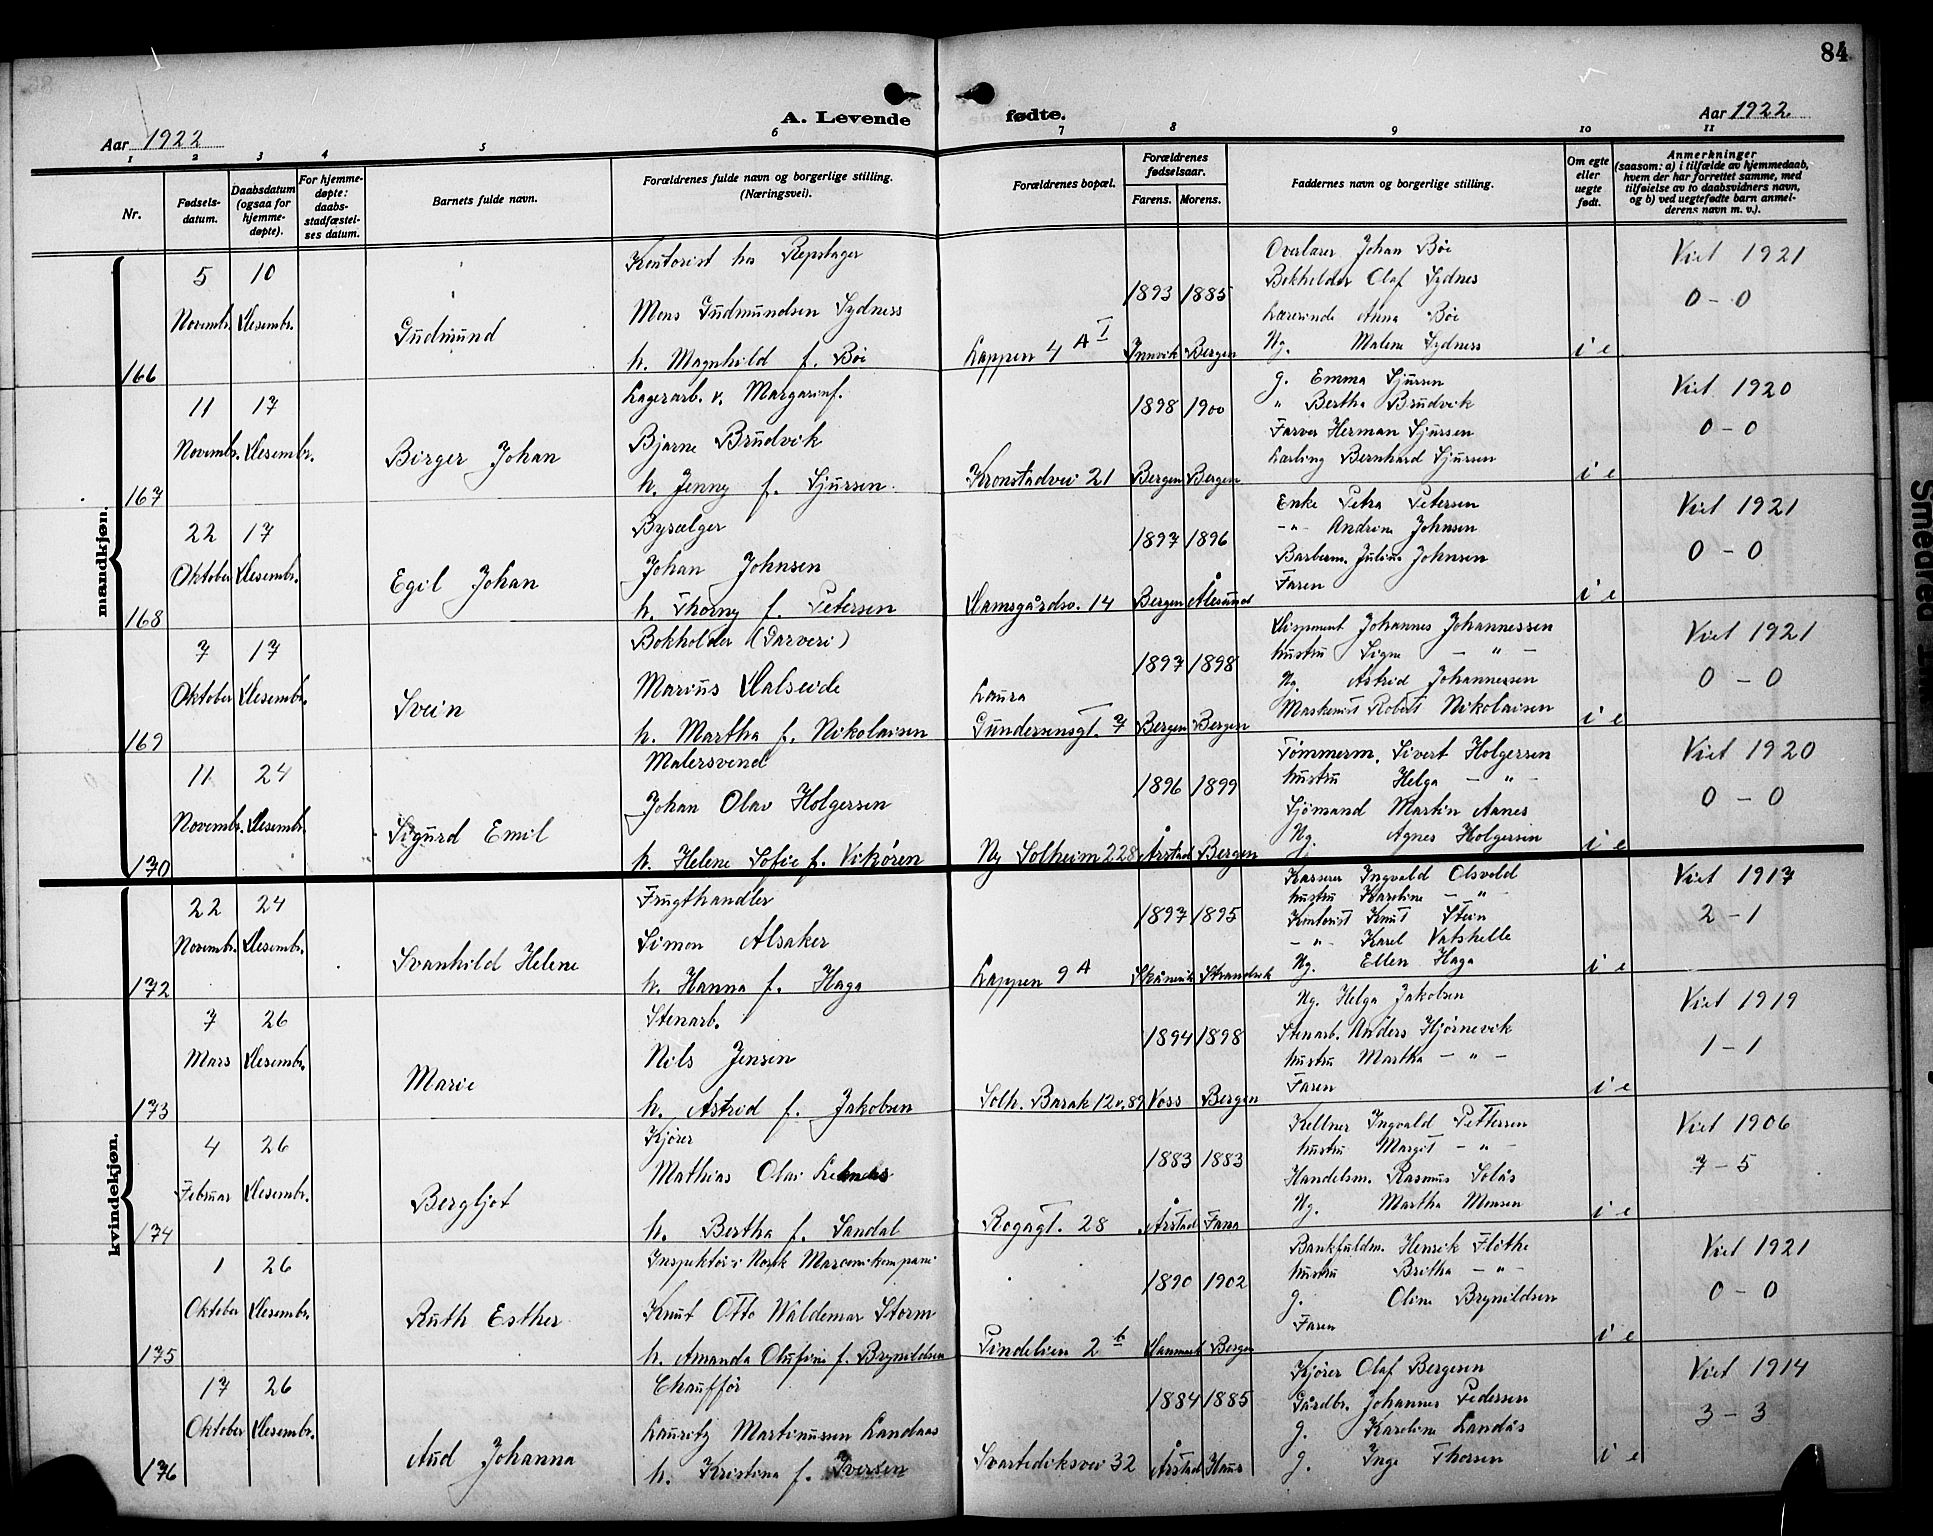 84
Aar 1922
A. Levende
fødte.
Aar 1922
1 2 3 4 5 6 7 8 9 10 11
Nr.
Fødsels-
datum.
Daabsdatum
(ogsaa for
hjemme-
døpte).
For hjemme-
døpte:
daabs-
stadfæstel-
ses datum.
Barnets fulde navn.
Forældrenes fulde navn og borgerlige stilling.
(Næringsvei).
Forældrenes bopæl.
Forældrenes
fødselsaar.
Farens. Morens.
Faddernes navn og borgerlige stilling.
Om egte
eller
uegte
født.
Anmerkninger
(saasom: a) i tilfælde av hjemmedaab,
hvem der har forrettet samme, med
tilføielse av to daabsvidners navn,
og b) ved uegtefødte barn anmel-
derens navn m. v.).
mandkjøn.
166
5 Novembr.
10 Desembr.
Gudmund
Kontorist hos Repslager
Mons Gudmundsen Sydness
h. Magnhild f. Böe
Lappen 4 A I
1893 Innvik
1885 Bergen
Overlærer Johan Böe
Bokholder Olaf Sydnes
Lærerinde Anna Böe
Ug. Malene Sydness
i e
Viet 1921
0 - 0
167
11 Novembr.
17 Desembr.
Birger Johan
Lagerarb. v. Margarinf.
Bjarne Brudvik
h. Jenny f. Sjursen
Kronstadvei 21
1898 Bergen
1900 Bergen
g. Emma Sjursen
" Bertha Brudvik
Farver Herman Sjursen
Lærling Bernhard Sjursen
i e
Viet 1920
0 - 0
168
22 Oktober
17 Desembr.
Egil Johan
Bysælger
Johan Johnsen
h. Thorny f. Petersen
Damsgårdsv. 14
1897 Bergen
1896 Ålesund
Enke Petra Petersen
- " - Andrine Johnsen
Barberm. Julius Johnsen
Faren
i e
Viet 1921
0 - 0
169
7 Oktober
17 Desembr.
Svein
Bokholder (Garveri)
Marius Dalseide
h. Martha f. Nikolaisen
Laura
Gundersensgt. 7
1897 Bergen
1898 Bergen
Disponent Johannes Johannessen
hustru Signe - " -
Ug. Astrid Johannessen
Maskinist Robert Nikolaisen
i e
Viet 1921
0 - 0
170
11 Novembr.
24 Desembr.
Sigurd Emil
Malersvend
Johan Olav Holgersen
h. Helene Sofie f. Vikören
Ny Solheim 228
1896 Årstad
1899 Bergen
Tömmerm. Sivert Holgersen
hustru Helga - " -
Sjömand Martin Aanes
Ug. Agnes Holgersen
i e
Viet 1920
0 - 0
kvindekjøn.
172
22 Novembr.
24 Desembr.
Svanhild Helene
Frugthandler
Simon Alsaker
h. Hanna f. Haga
Lappen 9 A
1897 Skånevik
1895 Strandvik
Kasserer Ingvald Olsvold
hustru Karoline - " -
Kontorist Knut Stein
- " - Karel Vatshelle
Ug. Ellen Haga
i e
Viet 1917
2 - 1
173
7 Mars
26 Desembr.
Marie
Stenarb.
Nils Jensen
h. Astrid f. Jakobsen
Solh. Barak 12 v. 89
1894 Voss
1898 Bergen
Ug. Helga Jakobsen
Stenarb. Anders Hjörnevik
hustru Martha - " -
Faren
i e
Viet 1919
1 - 1
174
4 Februar
26 Desembr.
Bergljot
Kjörer
Mathias Olai
h. Bertha f. Sandal
Rogagt. 28
1883 Årstad
1883 Fana
Kellner Ingvald Pettersen
hustru Margit - " -
Handelsm. Rasmus Solås
Ug. Martha Monsen
i e
Viet 1906
7 - 5
175
1 Oktober
26 Desembr.
Ruth Esther
Inspektör i Norsk Marconikompani
Knut Otto Waldemar Storm
h. Amanda Olufine f. Brynildsen
Tindelien 2 b
1890 Danmark
1902 Bergen
Bankfuldm. Henrik Flöthe
hustru Britha - " -
g. Oline Brynildsen
Faren
i e
Viet 1921
0 - 0
176
17 Oktober
26 Desembr.
Aud Johanna
Chaufför
Lauritz Martinusen Landaas
h. Kristina f. Iversen
Svartediksvei 32
1884 Årstad
1885 Haus
Kjörer Olaf Bergesen
Gårdbr. Johannes Pedersen
g. Karoline Landås
g. Inga Thorsen
i e
Viet 1914
3 - 3